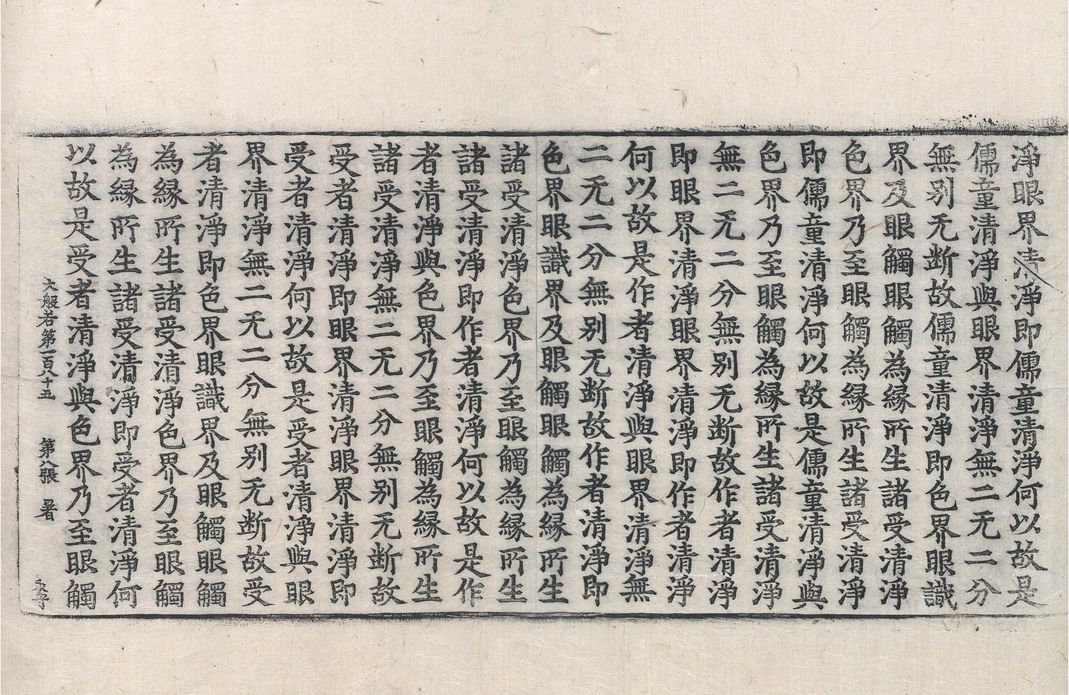 淨眼界清淨即儒童清淨何以故是
儒童清淨與眼界清淨無二无二分
無别无断故儒童清淨即色界眼識
界及眼觸眼觸為緣所生諸受清淨
色界乃至眼觸為緣所生諸受清淨
即儒童清淨何以故是儒童清淨與
色界乃至眼觸為緣所生諸受清淨
無二无二分無别无断故作者清淨
即眼界清淨眼界清淨即作者清淨
何以故是作者清淨與眼界清淨無
二无二分無别无断故作者清淨即
色界眼識界及眼觸眼觸為緣所生
諸受清淨色界乃至眼觸為緣所生
諸受清淨即作者清淨何以故是作
者清淨與色界乃至眼觸為緣所生
諸受清淨無二无二分無别无断故
受者清淨即眼界清淨眼界清淨即
受者清淨何以故是受者清淨與眼
界清淨無二无二分無别无断故受
者清淨即色界眼識界及眼觸眼觸
為緣所生諸受清淨色界乃至眼觸
為緣所生諸受清淨即受者清淨何
以故是受者清淨與色界乃至眼觸
大般若第一百八十五 第八張 暑